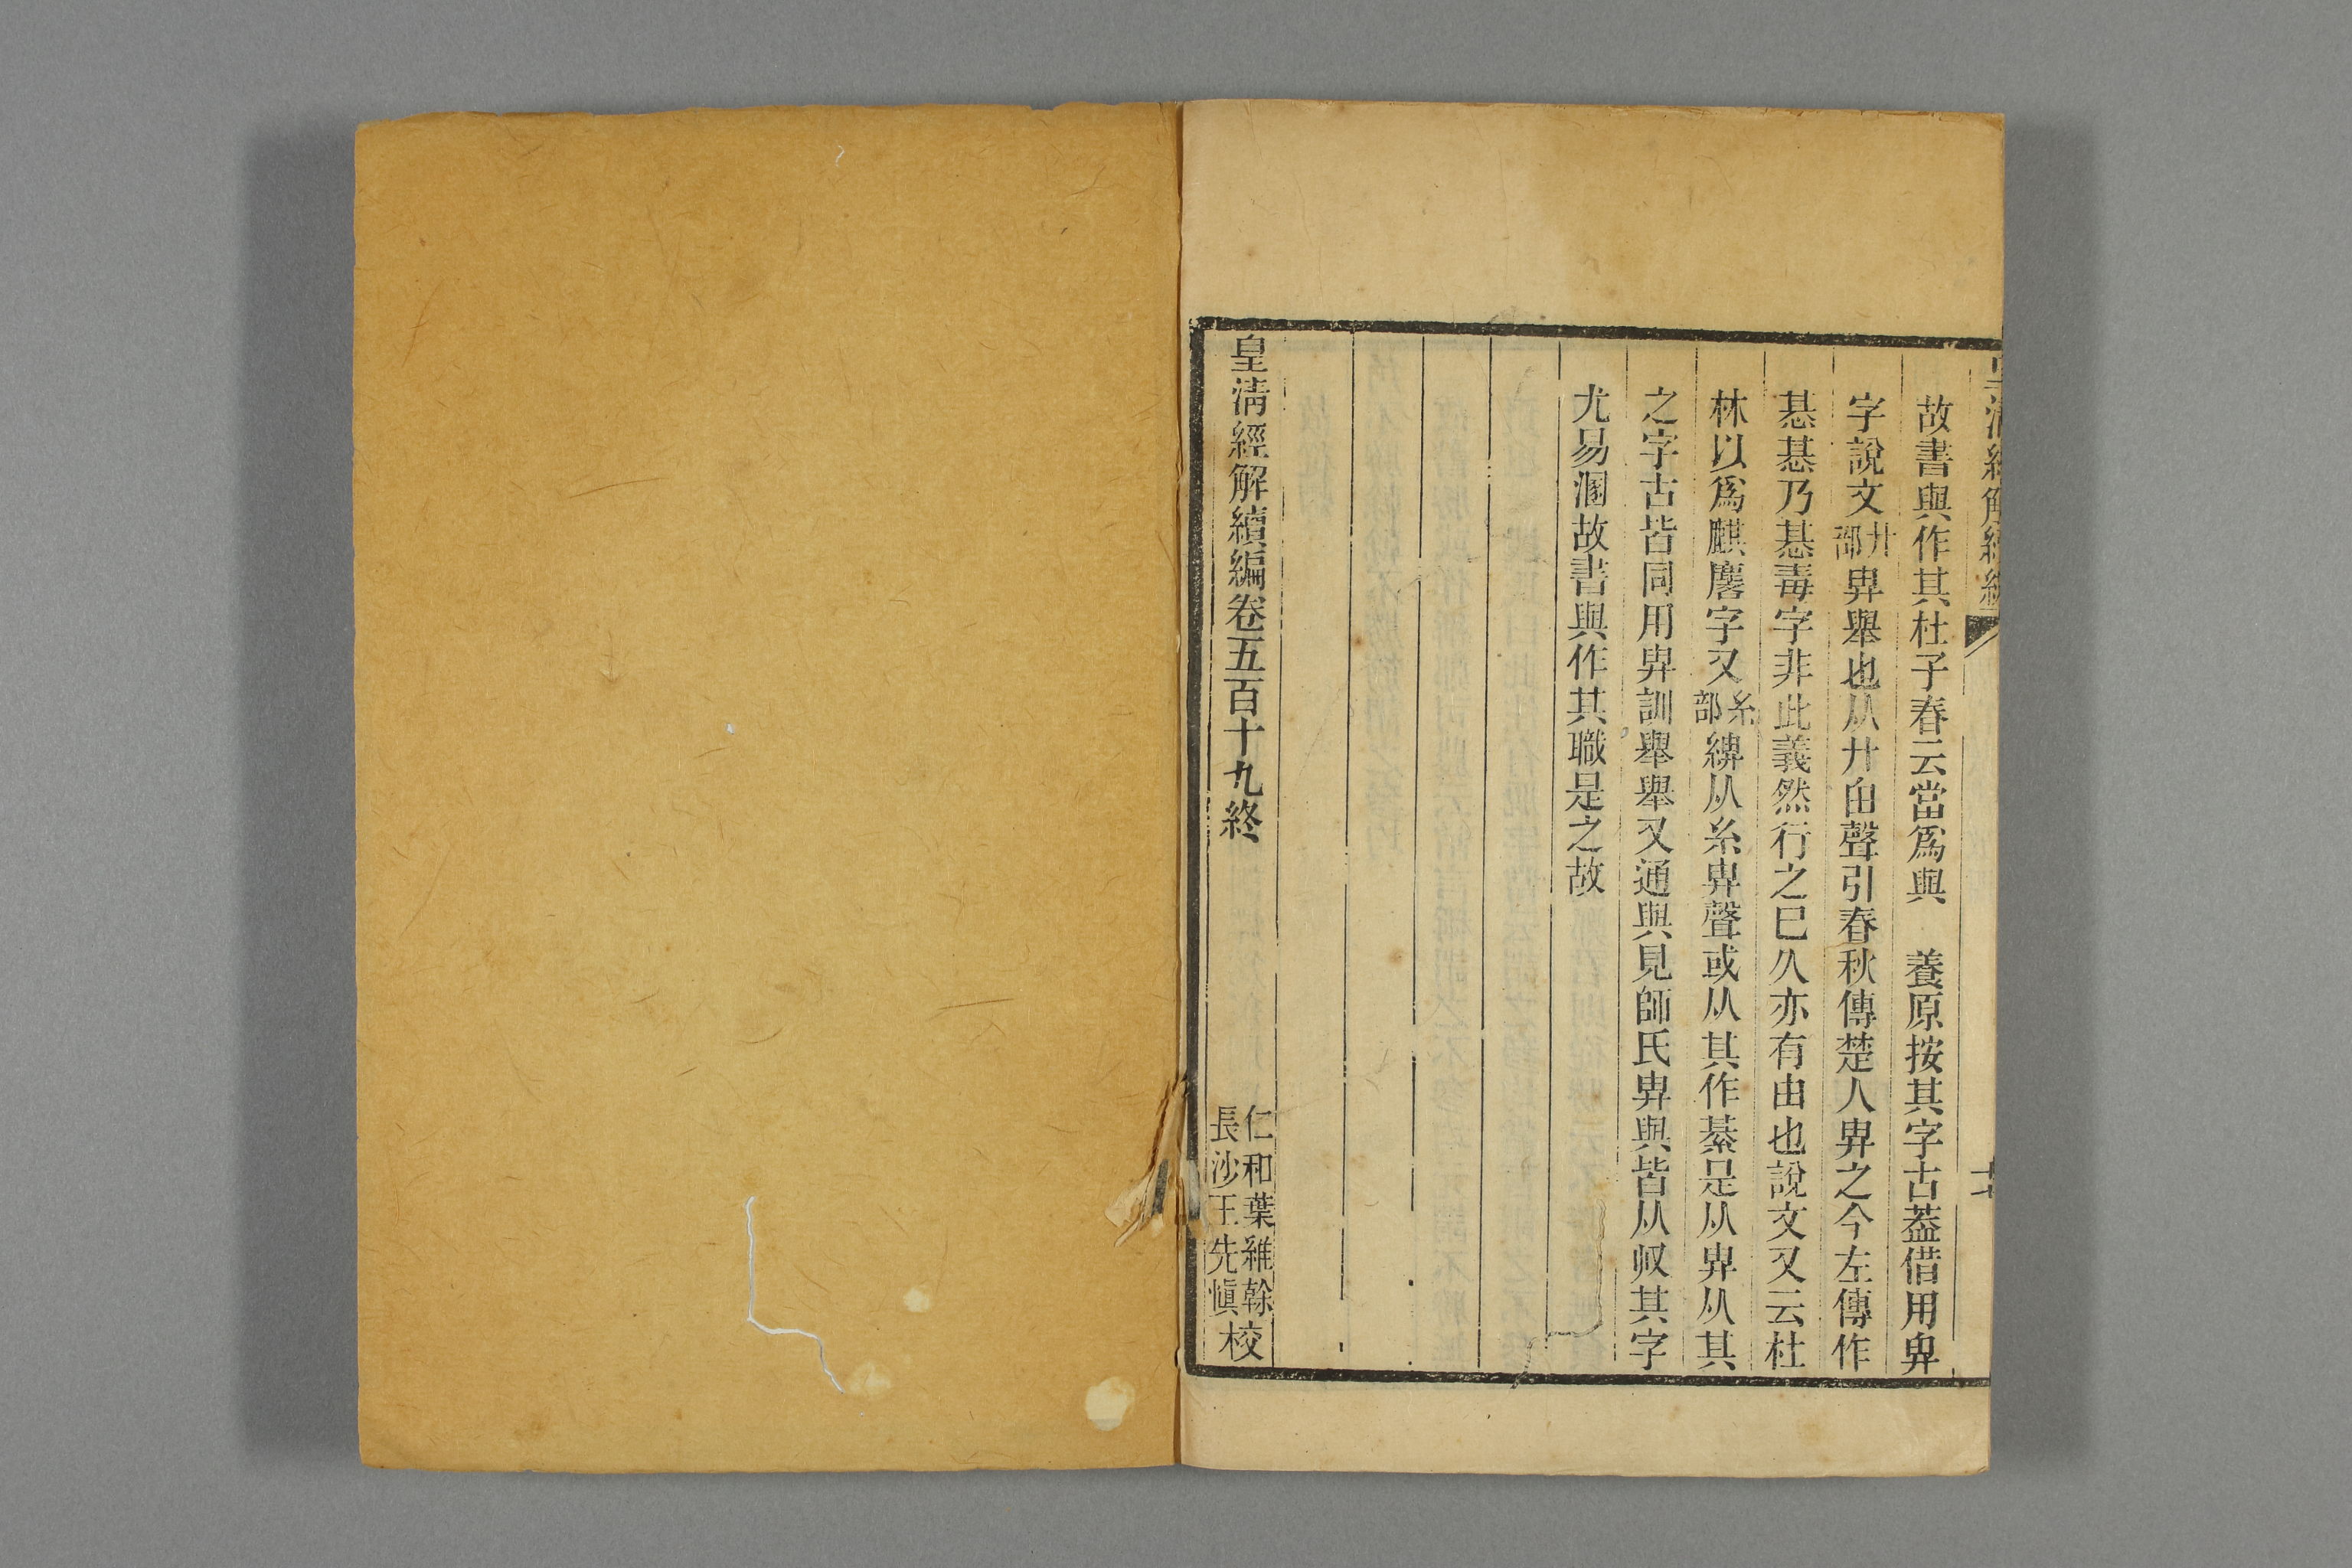 皇淸經解續編
十七
故書與作其杜子春云當爲與　養原按其字古葢借用𢌿
字說文廾部𢌿舉也从廾甶聲引春秋傳楚人𢌿之今左傳作
惎惎乃惎毒字非此義然行之已久亦有由也說文又云杜
林以爲麒麐字又糸部綥从糸𢌿聲或从其作綦是从𢌿从其
之字古皆同用𢌿訓舉舉又通與見師氏𢌿與皆从収其字
尤易溷故書與作其職是之故
皇淸經解續編卷五百十九終
仁和葉維榦
長沙王先愼校